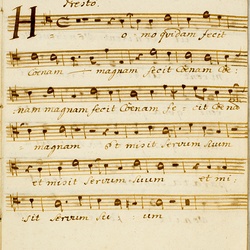 Presto.
Homo quidam fecit
Cœnam magnam fecit Cœnam Cœ:
nam magnam fecit Cœnam fe: cit Cœna
magnam Et misit servum suum
et misit servum suum et mi:
sit servum su: um